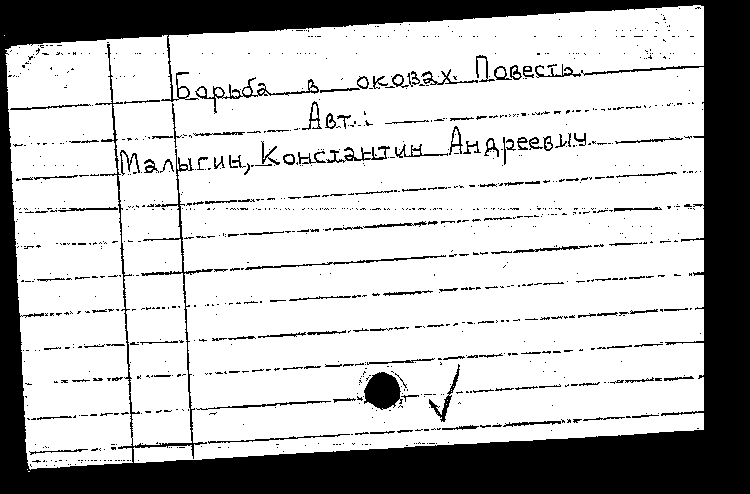 Борьба в оковах. Повесть.
Авт.:
Малыгин, Константин Андреевич.